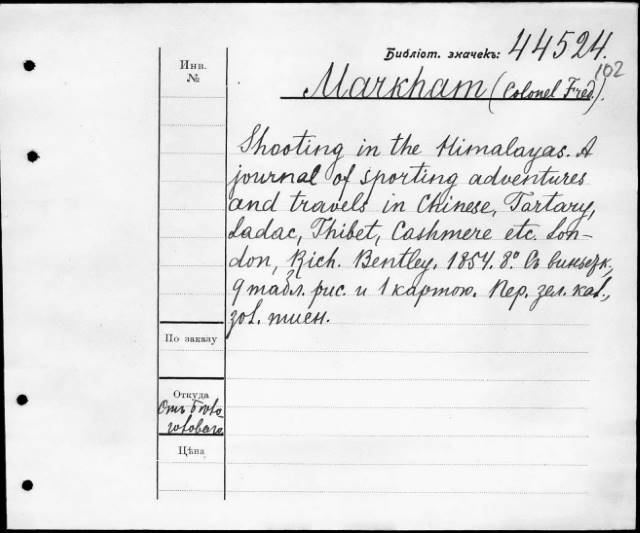 Библіот. значекъ: 44524.
102
Инв.
№
Markham (Colonel Fred.).
Shooting in the Himalayas. A
journal of sporting adventures
and travels in Chinese, Tartary,
Ladac, Thibet, Cashmere etc. Lon-
don, Rich. Bentley. 1854. 8° Съ виньетк,
9 табл. рис. и 1 картою. Пер. зел. кал.,
зол. тисн.
По заказу
Откуда
Отъ
Цѣна